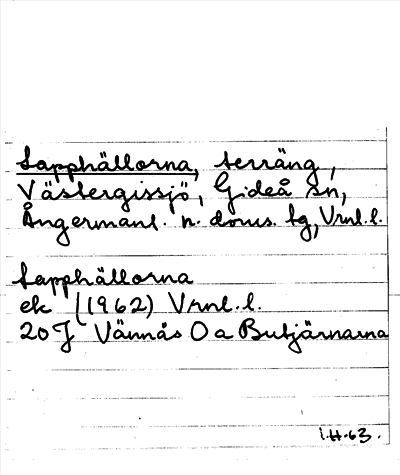 Lapphällorna, terräng,
Västergissjö, Gideå sn,
Ångermanl. n. doms. tg, Vrnl.l.
Lapphällorna
ek (1962) Vrnl.l.
20J Vännås O a Butjärnarna
1.H.63.